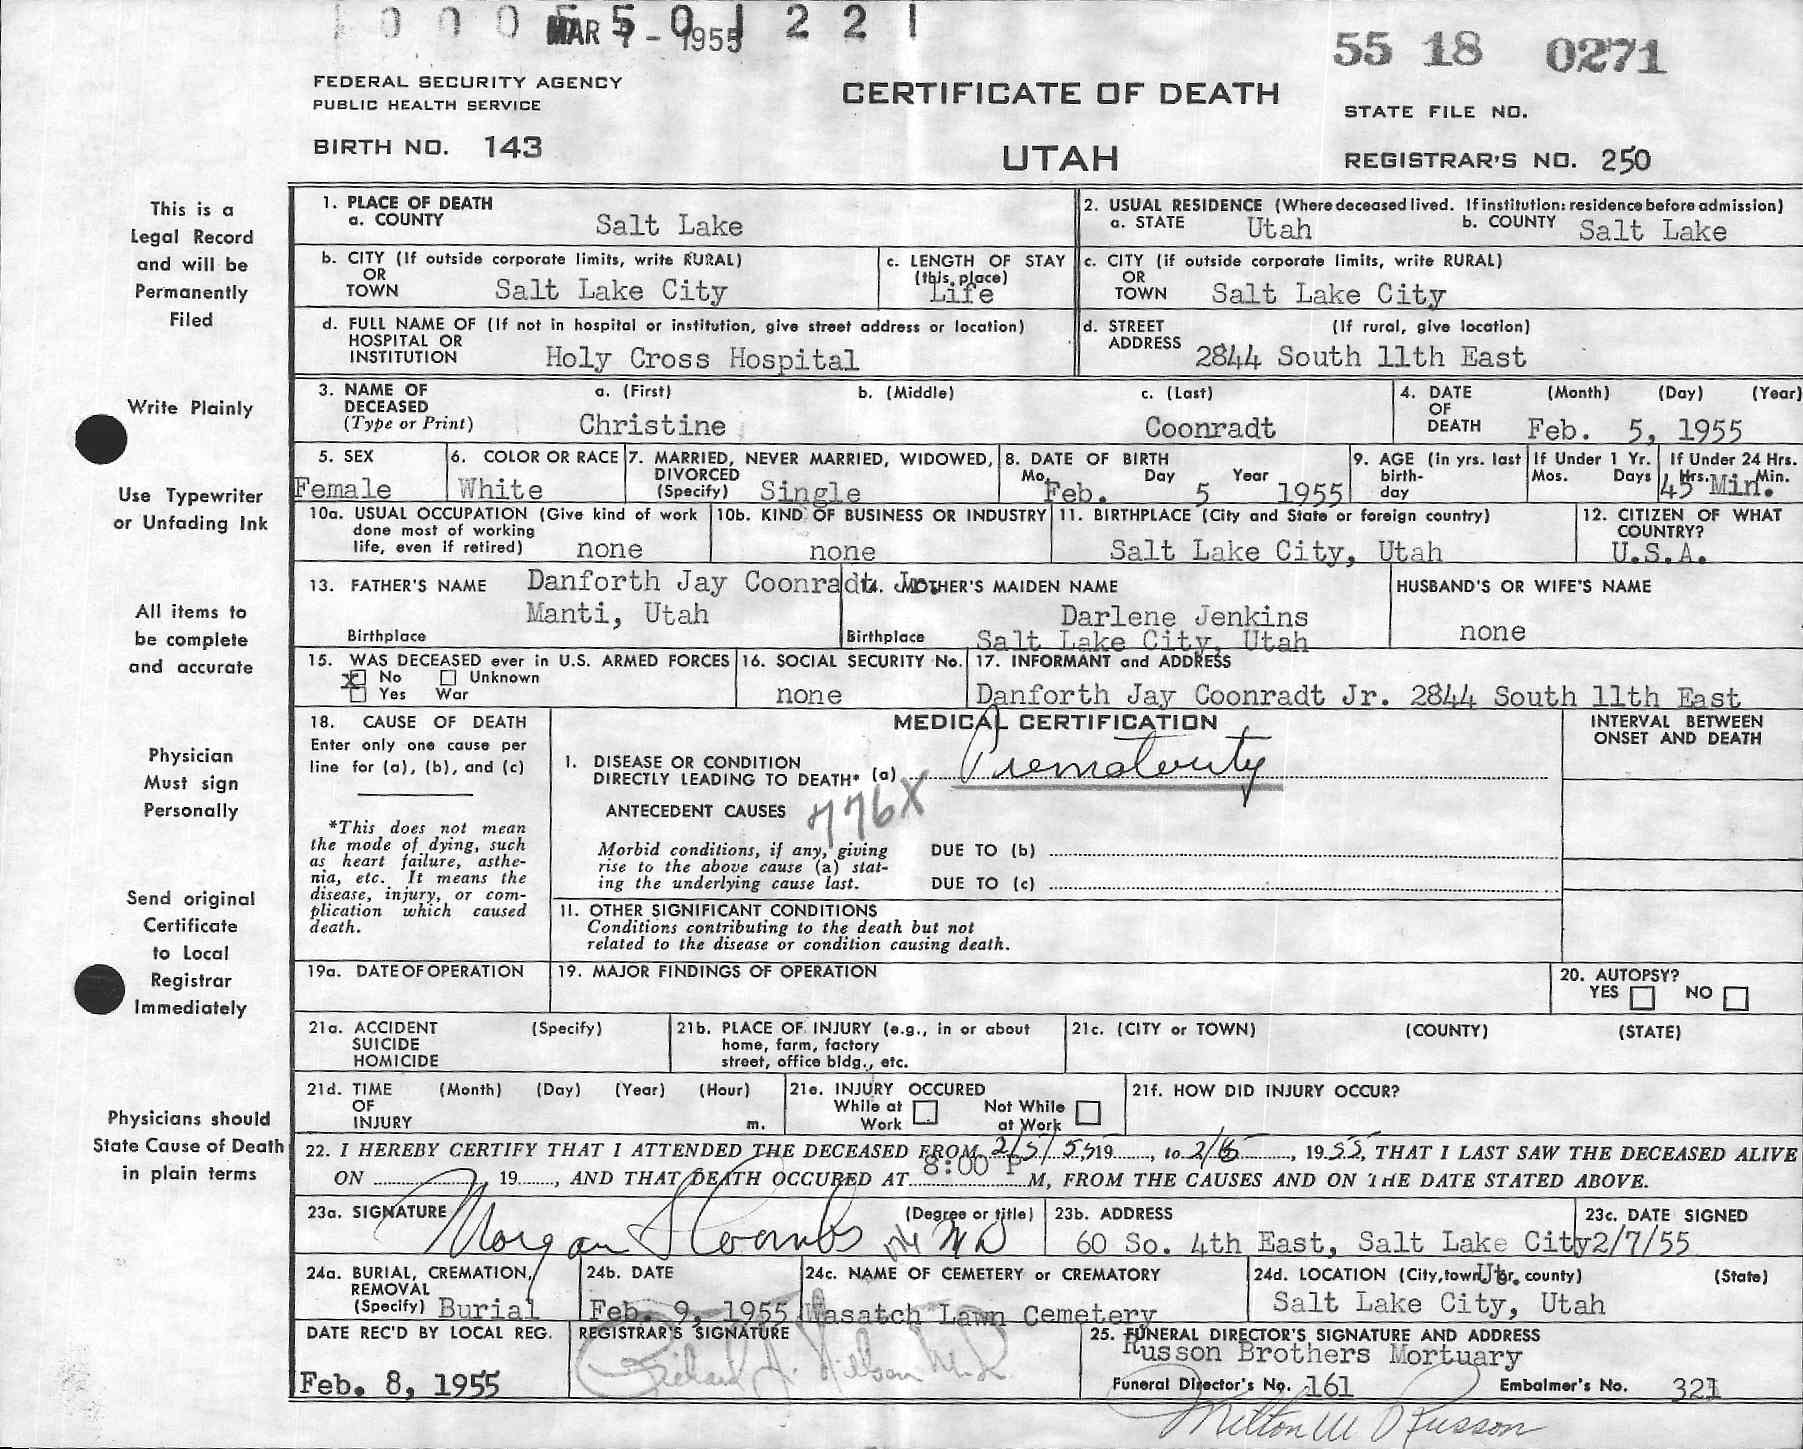 1 0 0 0 5 5 0 1 2 2 1
MAR 7 - 1955
55 18 0271
FEDERAL SECURITY AGENCY
PUBLIC HEALTH SERVICE
CERTIFICATE OF DEATH
STATE FILE NO.
BIRTH NO. 143
UTAH
REGISTRAR'S NO. 250
This is a
Legal Record
and will be
Permanently
Filed
Write Plainly
Use Typewriter
or Unfading Ink
All items to
be complete
and accurate
Physician
Must sign
Personally
Send original
Certificate
to Local
Registrar
Immediately
Physicians should
State Cause of Death
in plain terms
1. PLACE OF DEATH
a. COUNTY Salt Lake
2. USUAL RESIDENCE (Where deceased lived. If institution: residence before admission)
a. STATE Utah b. COUNTY Salt Lake
b. CITY (If outside corporate limits, write RURAL)
OR
TOWN Salt Lake City
c. LENGTH OF STAY
(this place)
Life
c. CITY (if outside corporate limits, write RURAL)
OR
TOWN Salt Lake City
d. FULL NAME OF (If not in hospital or institution, give street address or location)
HOSPITAL OR
INSTITUTION Holy Cross Hospital
d. STREET (If rural, give location)
ADDRESS 2844 South 11th East
3. NAME OF DECEASED (Type or Print)
a. (First) b. (Middle) c. (Last)
Christine Coonradt
4. DATE OF DEATH (Month) (Day) (Year)
Feb. 5, 1955
5. SEX
Female
6. COLOR OR RACE
White
7. MARRIED, NEVER MARRIED, WIDOWED,
DIVORCED
(Specify) Single
8. DATE OF BIRTH
Mo. Day Year
Feb. 5 1955
9. AGE (in yrs. last
birth-
day
If Under 1 Yr.
Mos. Days
If Under 24 Hrs.
Hrs. Min.
45 Min.
10a. USUAL OCCUPATION (Give kind of work
done most of working
life, even if retired) none
10b. KIND OF BUSINESS OR INDUSTRY
none
11. BIRTHPLACE (City and State or foreign country)
Salt Lake City, Utah
12. CITIZEN OF WHAT
COUNTRY?
U.S.A.
13. FATHER'S NAME Danforth Jay Coonradt Jr.
Manti, Utah
Birthplace
14. MOTHER'S MAIDEN NAME
Darlene Jenkins
Birthplace Salt Lake City, Utah
HUSBAND'S OR WIFE'S NAME
none
15. WAS DECEASED ever in U.S. ARMED FORCES
x No Unknown
Yes War
16. SOCIAL SECURITY No.
none
17. INFORMANT and ADDRESS
Danforth Jay Coonradt Jr. 2844 South 11th East
18. CAUSE OF DEATH
Enter only one cause per
line for (a), (b), and (c)
*This does not mean
the mode of dying, such
as heart failure, asthe-
nia, etc. It means the
disease, injury, or com-
plication which caused
death.
MEDICAL CERTIFICATION
INTERVAL BETWEEN
ONSET AND DEATH
1. DISEASE OR CONDITION
DIRECTLY LEADING TO DEATH* (a) Prematurity
ANTECEDENT CAUSES 776X
Morbid conditions, if any, giving
rise to the above cause (a) stat-
ing the underlying cause last.
DUE TO (b)
DUE TO (c)
11. OTHER SIGNIFICANT CONDITIONS
Conditions contributing to the death but not
related to the disease or condition causing death.
19a. DATE OF OPERATION
19. MAJOR FINDINGS OF OPERATION
20. AUTOPSY?
YES NO
21a. ACCIDENT (Specify)
SUICIDE
HOMICIDE
21b. PLACE OF INJURY (e.g., in or about
home, farm, factory
street, office bldg., etc.
21c. (CITY or TOWN) (COUNTY) (STATE)
21d. TIME (Month) (Day) (Year) (Hour)
OF
INJURY m.
21e. INJURY OCCURED
While at Work Not While at Work
21f. HOW DID INJURY OCCUR?
22. I HEREBY CERTIFY THAT I ATTENDED THE DECEASED FROM 2/5/55 19, to 2/5, 1955, THAT I LAST SAW THE DECEASED ALIVE
ON, 19, AND THAT DEATH OCCURED AT 8:00 P M, FROM THE CAUSES AND ON THE DATE STATED ABOVE.
23a. SIGNATURE (Degree or title)
Morgan S Coombs MD
23b. ADDRESS
60 So. 4th East, Salt Lake City
Ut.
23c. DATE SIGNED
2/7/55
24a. BURIAL, CREMATION,
REMOVAL
(Specify) Burial
24b. DATE
Feb. 9, 1955
24c. NAME OF CEMETERY or CREMATORY
Wasatch Lawn Cemetery
24d. LOCATION (City, town, or county) (State)
Salt Lake City, Utah
DATE REC'D BY LOCAL REG.
Feb. 8, 1955
REGISTRAR'S SIGNATURE
Richard A. Nilson M.D.
25. FUNERAL DIRECTOR'S SIGNATURE AND ADDRESS
Russon Brothers Mortuary
Funeral Director's No. 161 Embalmer's No. 321
Milton W Russon